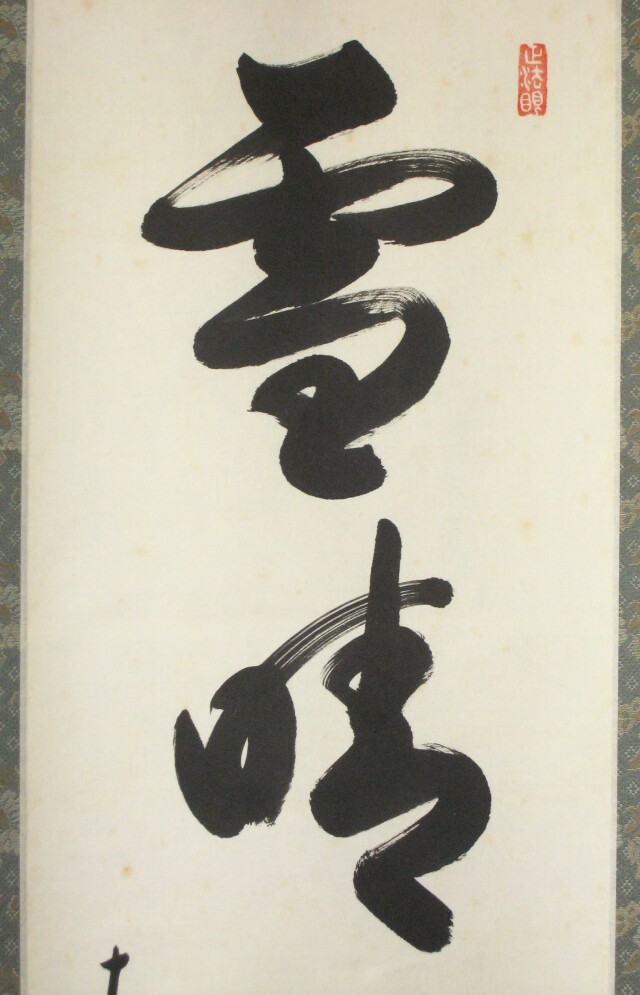 正法眼
雪晴